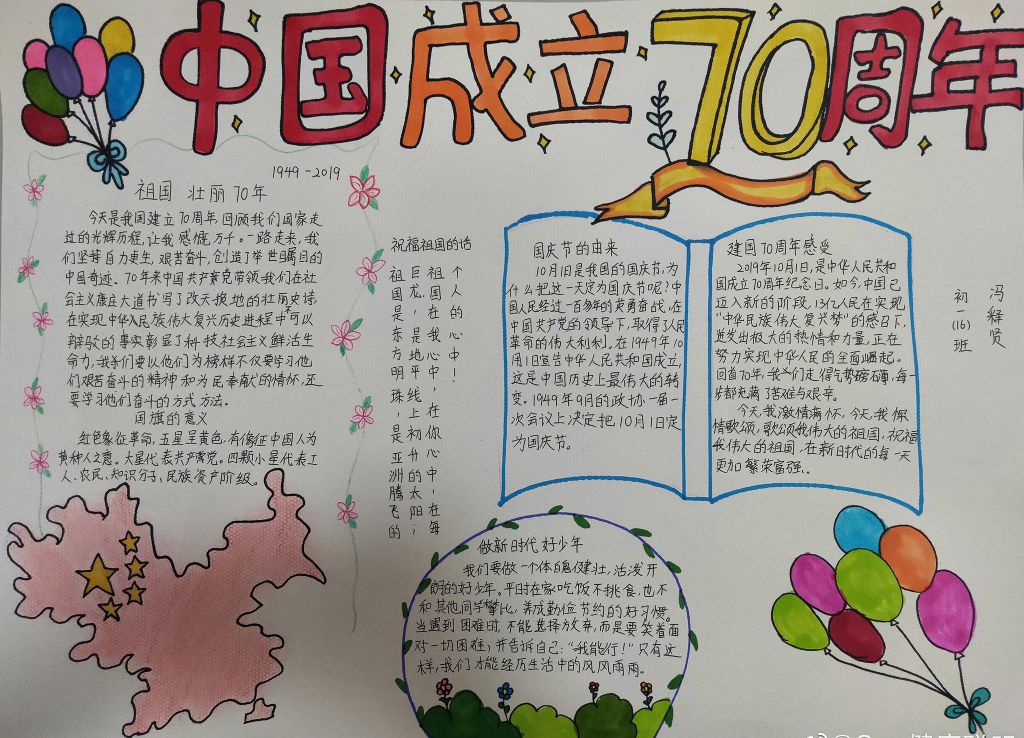 中国成立70周年
1949-2019
祖国 壮丽70年
今天是我国建立70周年回顾我们国家走
过的光辉历程,让我感慨万千。一路走来,我
们坚持自力更生,艰苦奋斗,创造了举世瞩目的
中国奇迹。70年来中国共产党带领我们在社
会主义康庄大道书写了改天换地的壮丽史诗
在实现中华人民族伟大复兴历史进程中可以
辩驳的事实彰显了科技社会主义鲜活生
命力,我们要以他们为榜样不仅要学习他
们艰苦奋斗的精神和为民奉献的情怀,还
要学习他们奋斗的方式方法。
国旗的意义
红色象征革命,五星呈黄色,有像征中国人为
黄种人之意。大星代表共产党。四颗小星代表工
人、农民、知识分子、民族资产阶级。
祝福祖国的话
个人的心中!
祖国在我心中,在你心中,在每
巨龙,是地平线上初升的太阳;
祖国是,东方明珠,是亚洲腾飞的
国庆节的由来
10月1日是我国的国庆节,为
什么把这一天定为国庆节呢?中
国人民经过一百多年的英勇奋战,在
中国共产党的领导下,取得了人民
革命的伟大利利。在1949年10
月1日宣告中华人民共和国成立,
这是中国历史上最伟大的转
变。1949年9月的政协一届一
次会议上决定把10月1日定
为国庆节。
建国70周年感受
2019年10月1日,是中华人民共和
国成立70周年纪念日。如今,中国已
迈入新的阶段,13亿人民在实现
“中华民族伟大复兴梦”的感召下,
迸发出极大的热情和力量,正在
努力实现中华人民的全面崛起。
回首70年,我们走得气势磅礴,每一
步都充满了苦难与艰辛。
今天,我激情满怀,今天,我倾
情歌颂,歌颂我伟大的祖国,祝福
我伟大的祖国,在新时代的每一天
更加繁荣富强..
冯释贤
初一(16)班
做新时代好少年
我们要做一个体魄健壮,活泼开
朗的好少年。平时在家吃饭不挑食,也不
和其他同学攀比,养成勤俭节约的好习惯。
当遇到困难时,不能选择放弃,而是要笑着面
对一切困难;并告诉自己:“我能行!”只有这
样,我们才能经历生活中的风风雨雨。